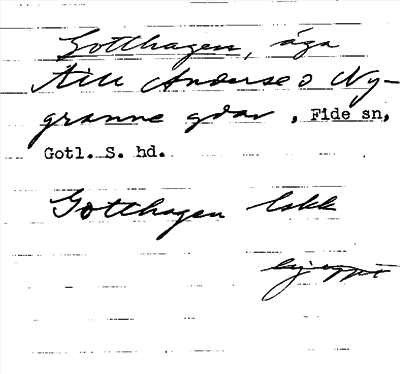 Gotthagen, äga
till Anderse o Ny-
granne gdar, Fide sn,
Gotl. S. hd.
Gotthagen